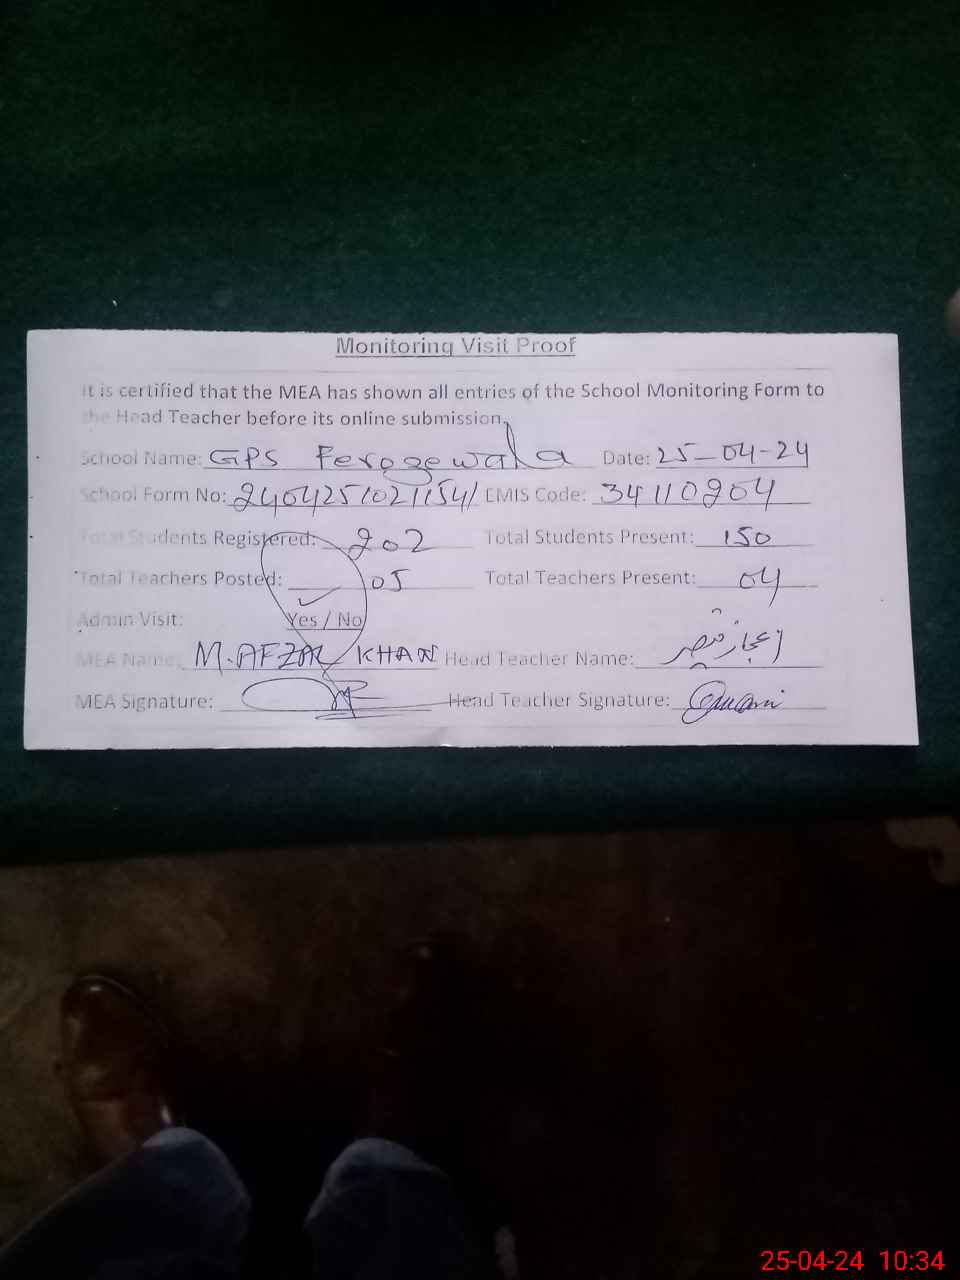 Monitoring Visit Proof
It is certified that the MEA has shown all entries of the School Monitoring Form to
the Head Teacher before its online submission.
School Name: GPS Ferozewala Date: 25-04-24
School Form No: 24042510211541 EMIS Code: 34110204
Total Students Registered: 202 Total Students Present: 150
Total Teachers Posted: 05 Total Teachers Present: 04
Admin Visit: Yes / No
MEA Name: M.AFZAL KHAN Head Teacher Name: اعجاز قیصر
MEA Signature: Head Teacher Signature:
25-04-24 10:34